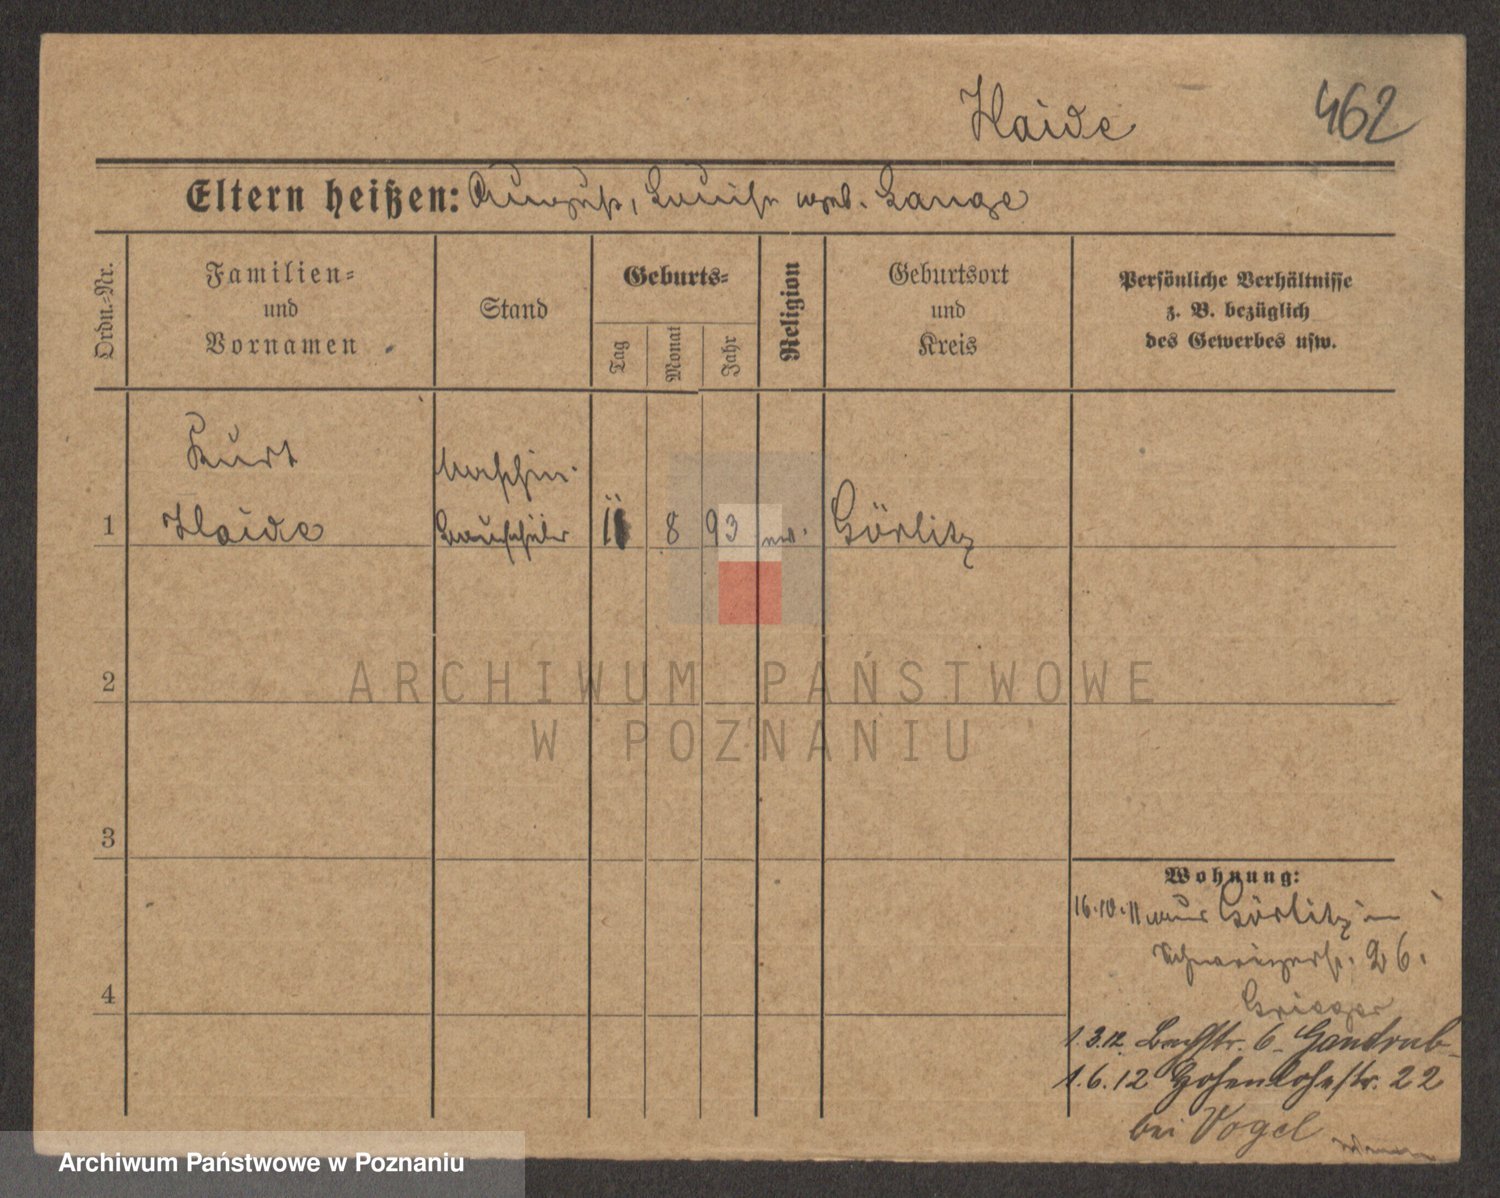 Haide 462
Eltern heißen: August, Louise geb. Lange
Ordn.-Nr.
Familien-
und
Vornamen
Stand
Geburts-
Tag
Monat
Jahr
Religion
Geburtsort
und
Kreis
Persönliche Verhältnisse
z. B. bezüglich
des Gewerbes usw.
Kurt Maschin.
1 Haide Bauschüler 11 8 93 ev. Görlitz
2
3
4
Wohnung:
16.10.11 aus Görlitz in
26.
Krieger
1.3.12. Bachstr. 6
1.6.12 Hohenlohestr. 22
bei Vogel
ARCHIWUM PAŃSTWOWE
W POZNANIU
Archiwum Państwowe w Poznaniu